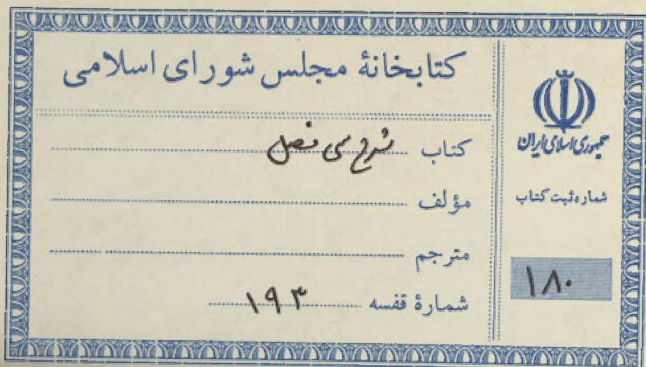 کتابخانهٔ مجلس شورای اسلامی
کتاب شرح سی فصل
مؤلف
مترجم
شمارهٔ قفسه ۱۹۳
جمهوری اسلامی ایران
شماره ثبت کتاب
۱۸۰